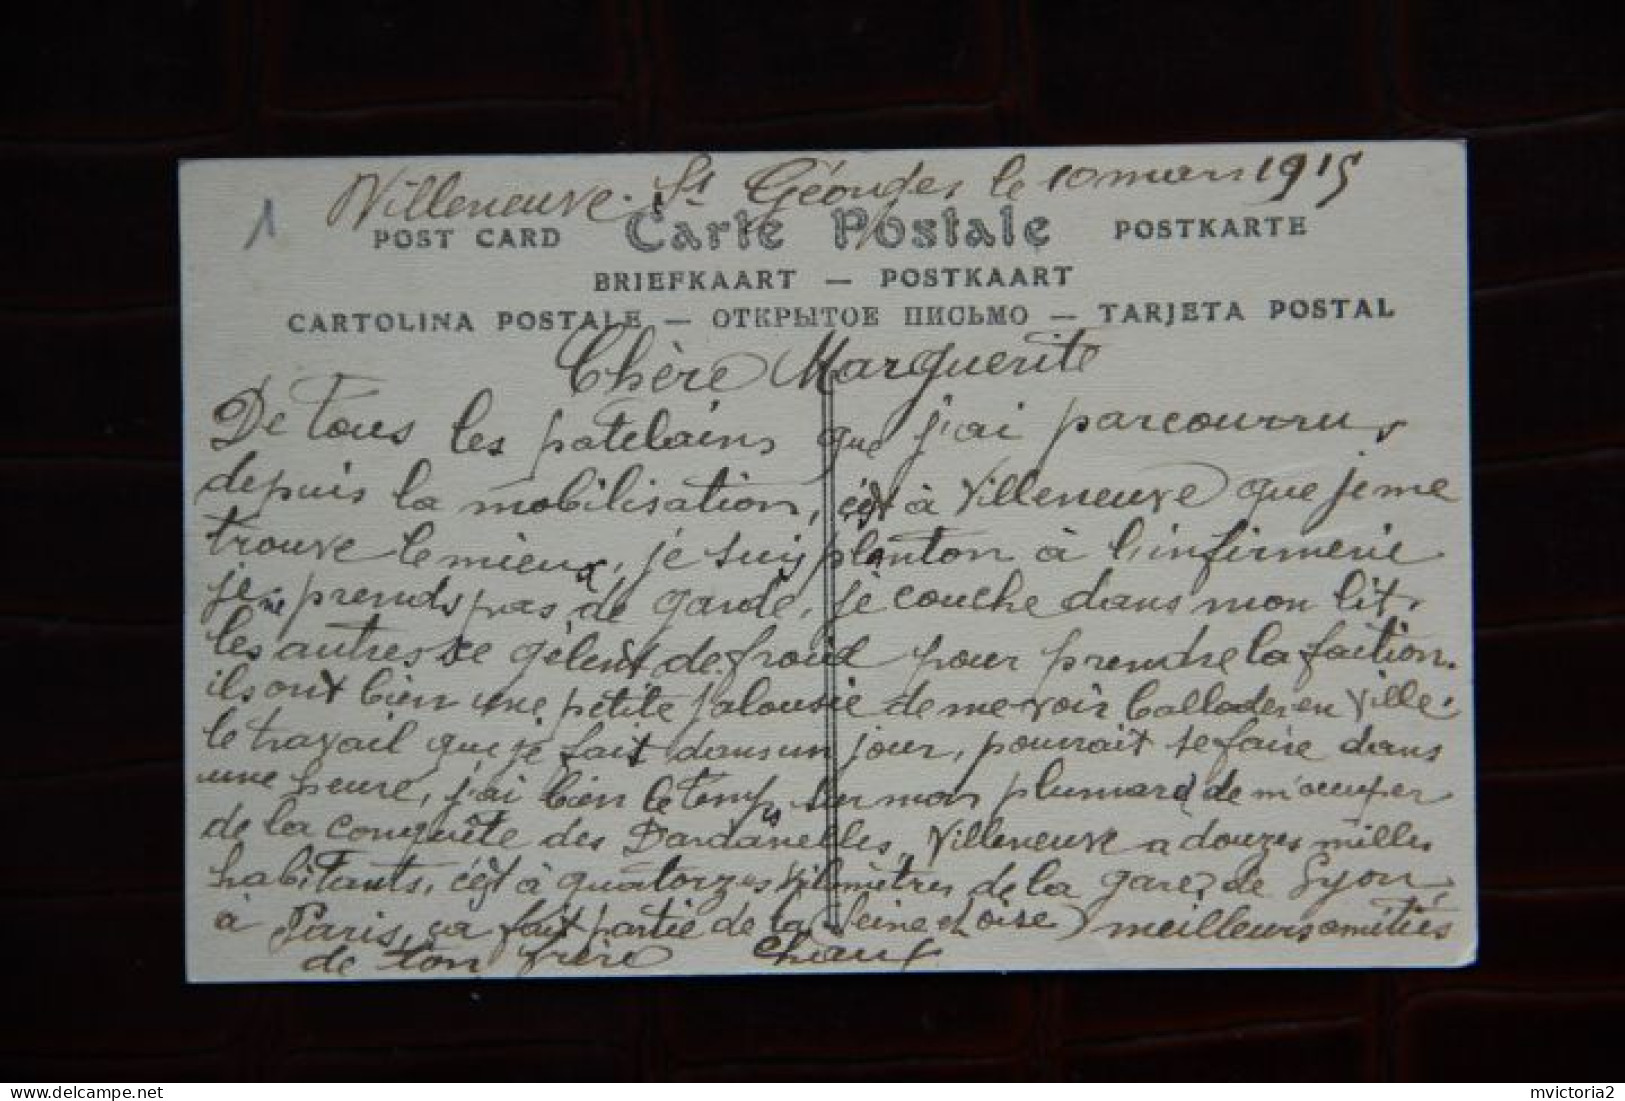 1
Villeneuve. St Géorges le 10 mars 1915
POST CARD Carte Postale POSTKARTE
BRIEFKAART — POSTKAART
CARTOLINA POSTALE — ОТКРЫТОЕ ПИСЬМО — TARJETA POSTAL
Chère Marguerite
De tous les patelains que j'ai parcourrus
depuis la mobilisation, c'est à Villeneuve que je me
trouve le mieux, je suis planton à l'infirmerie
je ne prends pas de garde, je couche dans mon lit.
les autres se gèlent de froid pour prendre la faction.
ils ont bien une pétite jalousie de me voir ballader en ville.
le travail que je fait dans un jour, pourrait se faire dans
une heure, j'ai bien le temps sur mon plumard de m'occuper
de la conquête des Dardanelles, Villeneuve a douzes milles
habitants, c'est à quatorzes kilomètres de la gare de Lyon
à Paris, ça fait partie de la (Seine et Oise) meilleurs amitiés
de ton frère
mvictoria2